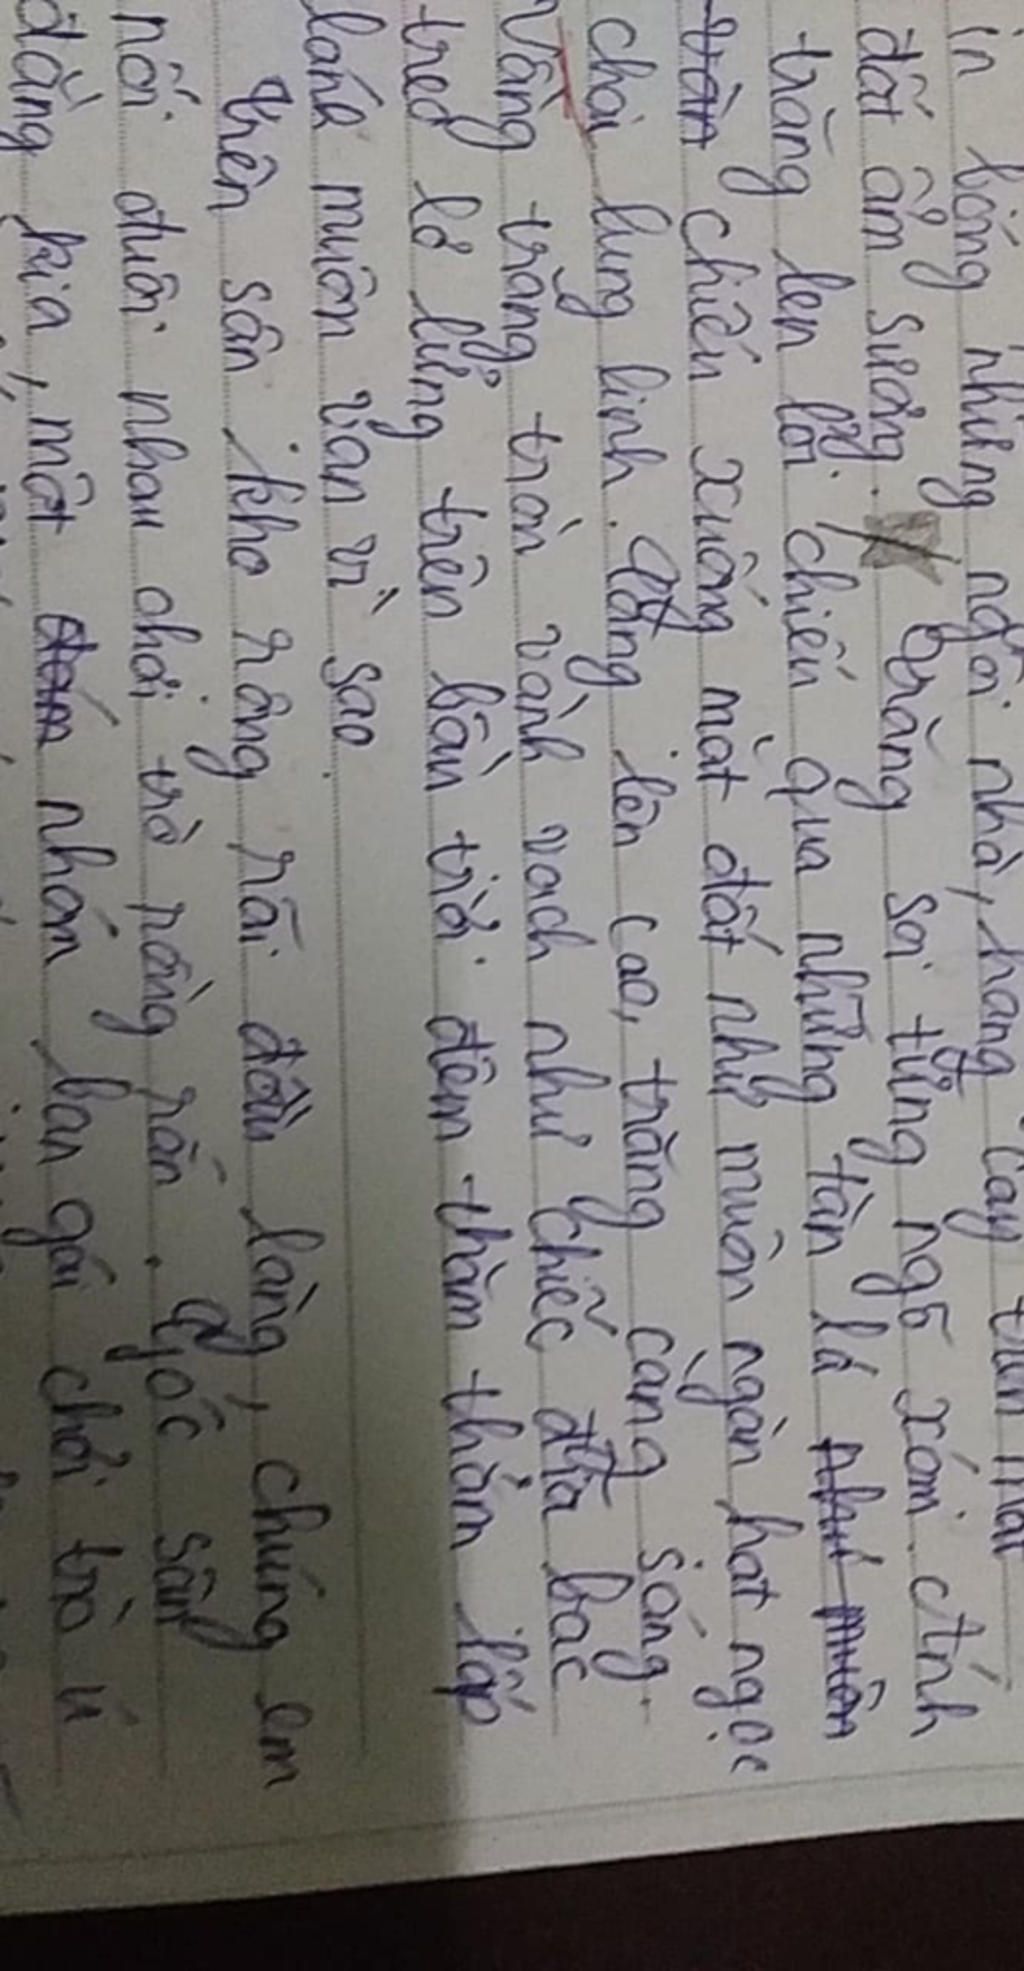 in bóng những ngôi nhà, hàng cây trên mặt
đất ẩm sương. Trăng soi từng ngõ xóm. Ánh
trăng len lỏi chiếu qua những tàn lá như muôn
vàn chiếu xuống mặt đất như muôn ngàn hạt ngọc
chói lung linh. Càng lên cao, trăng càng sáng.
Vầng trăng tròn vành vạch như chiếc đĩa bạc
treo lơ lửng trên bầu trời đêm thăm thẳm lấp
lánh muôn vàn vì sao.
Trên sân kho rộng rãi đầu làng, chúng em
nối đuôi nhau chơi trò rồng rắn. Góc sân
đằng kia, một đám nhóm bạn gái chơi trò ú